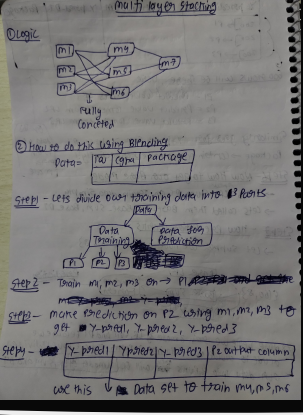 multi layer stacking
① Logic
m1 m4
m2 m5 m7
m3 m6
Fully
Conceted
② How to do this using Blending
Data = IQ Cgpa package
Step1 - Lets divide our training data into 3 Parts
Data
Data Training Data for Prediction
P1 P2 P3
Step 2 - Train m1, m2, m3 on → P1
Step3 - make Prediction on P2 using m1, m2, m3 to
get Y-pred1, Y-pred2, Y-pred3
Step4 - Y-pred1 Ypred2 Y-pred3 P2 output column
use this Data set to train m4, m5, m6